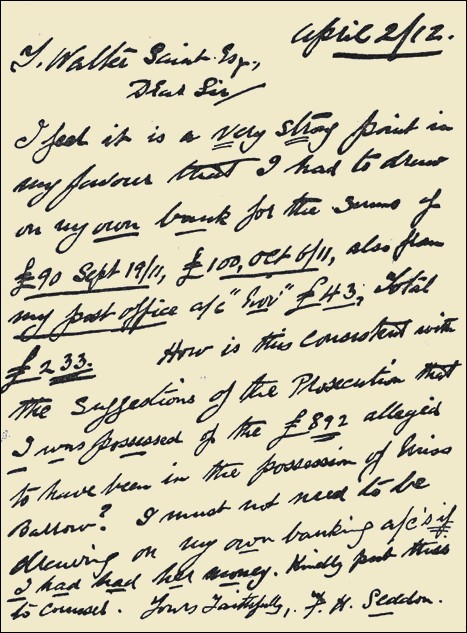 April 2/12.
T. Walter Saint Esq.,
Dear Sir/
I feel it is a very strong point in
my favour that I had to draw
on my own bank for the sums of
£90 Sept 19/11, £100, Oct 6/11, also from
my post office a/c "Nov" £43, Total
£233. How is this consistent with
the suggestions of the Prosecution that
I was possessed of the £892 alleged
to have been in the possession of Miss
Barrow? I must not need to be
drawing on my own banking a/c's if
I had had her money. Kindly put this
to Counsel. Yours Faithfully, F. H. Seddon.